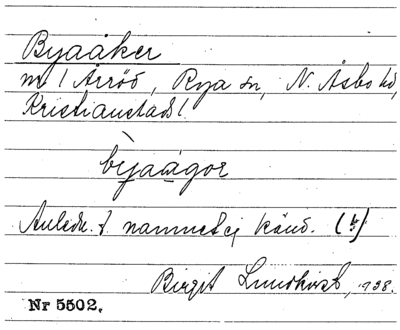 Byaåker
nr 1 Arröd, Rya sn, N. Åsbo hd,
Kristianstads l.
bỳaågor
Anledn. t. namnet ej känd. (4)
Birgit Lundkvist, 1938.
Nr 5502.